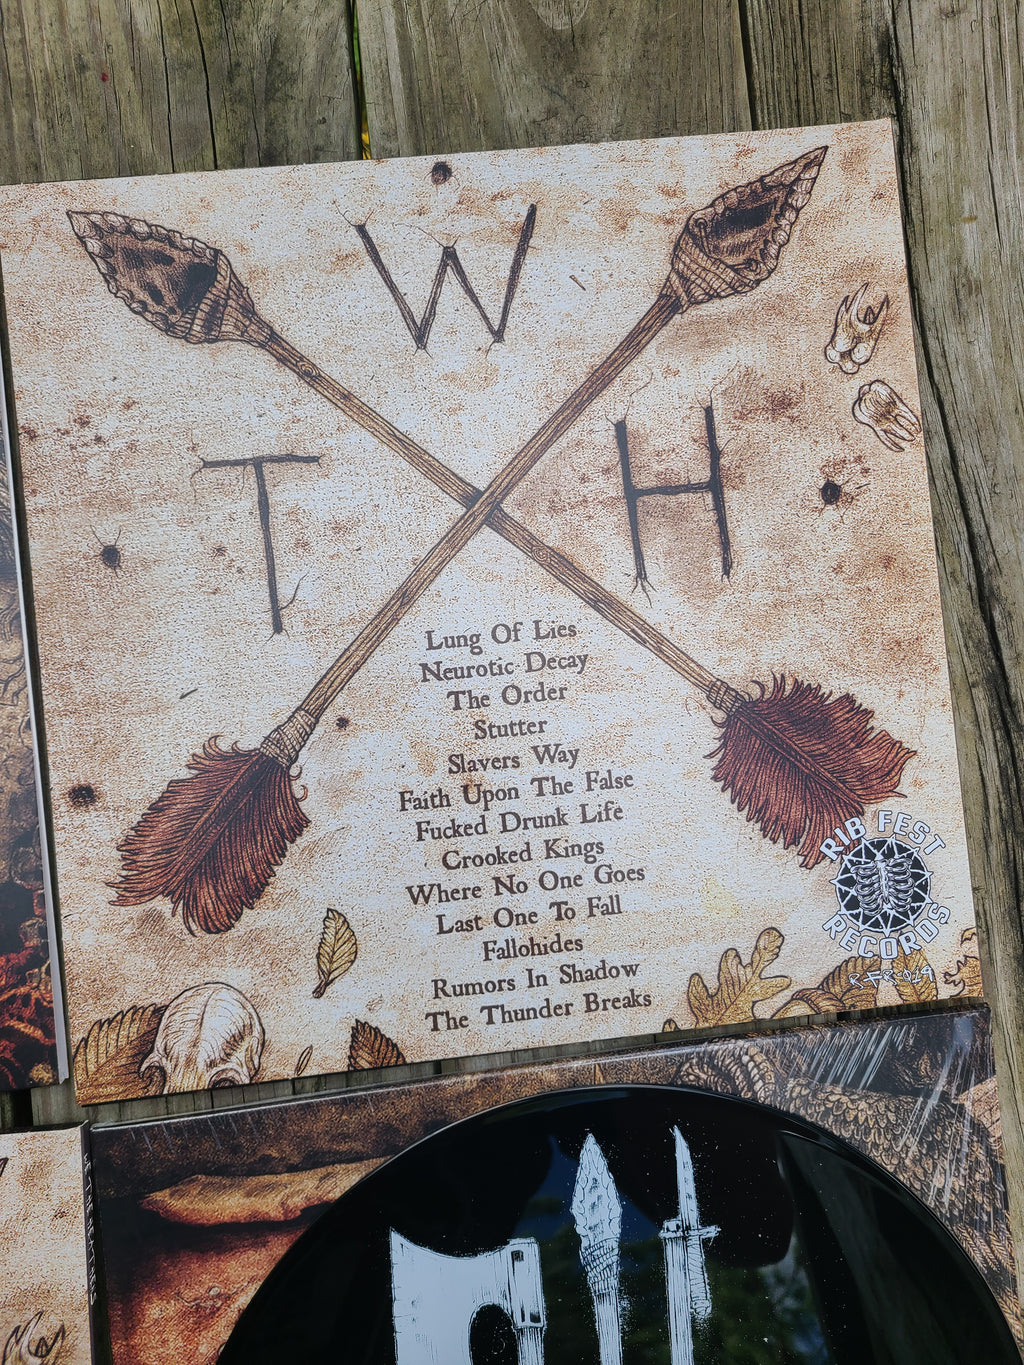 W
T H
Lung Of Lies
Neurotic Decay
The Order
Stutter
Slavers Way
Faith Upon The False
Fucked Drunk Life
Crooked Kings
Where No One Goes
Last One To Fall
Fallohides
Rumors In Shadow
The Thunder Breaks
RIB FEST
RECORDS
RFR-029